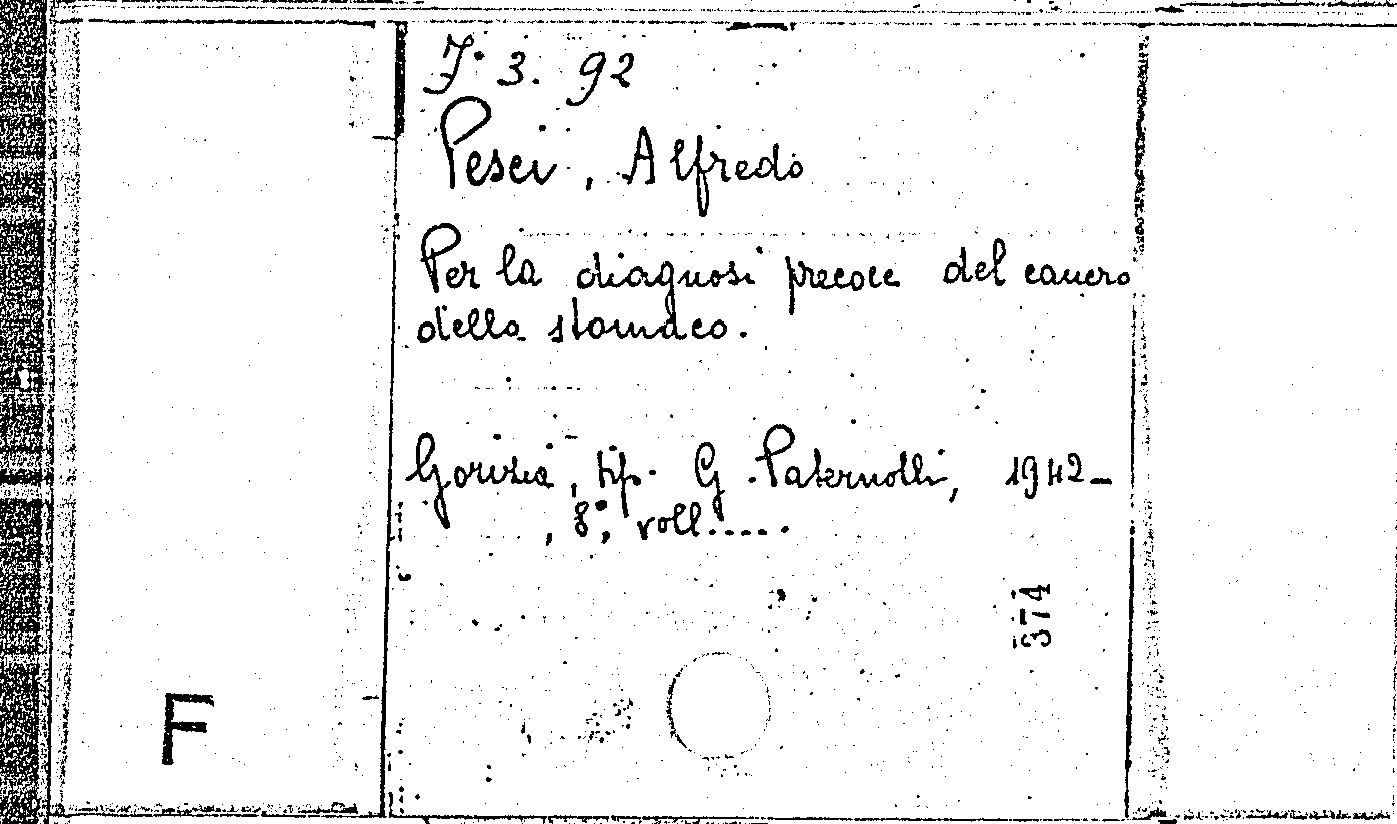 7. 3. 92
Pesci, Alfredo
Per la diagnosi precoce del cancro
dello stomaco.
Gorizia, tip. G. Paternolli, 1942-
, 8°, voll.....
374
F